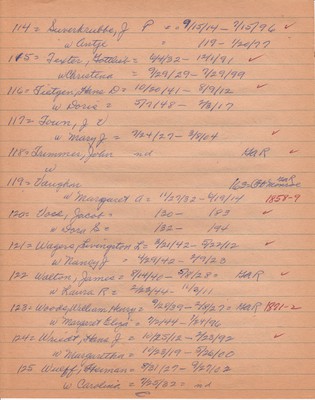 114 = Suverkrubbe, J P = 9/15/14 - 7/15/96 ✓
w Antje 119 - 1/20/77
115 = Texter, Gottlieb = 12/1/91 ✓
w Christina = 9/29/29 - 7/29/99
116 = Tietgen, Hans D = 10/20/41 - 8/9/12 ✓
w Doris = 5/7/48 - 2/2/17
117 = Town, J W
w Mary J = 2/24/27 - 3/8/04 ✓
118 = Tummer, John = nd HAR ✓
w
119 = Vaughn HAR
w Margaret A = 11/27/32 - 4/19/14 1858-9
120 = Voss, Jacob = 120 - 183 ✓
w Dora E = 132 - 194
121 = Wayne, Livingston L = 2/21/42 - 5/22/12 ✓
w Nancy J = 4/29/42 - 3/19/23
122 Walton, James = 7/14/40 - 5/8/28 = HAR ✓
w Laura R = 2/23/44 - 11/3/11
123 = Woods, William Henry = 9/25/29 - 2/8/27 = HAR 1871-2
w Margaret Eliza = 7/1/44 - 1/24/96
124 = Wriedt, Hans J = 10/25/12 - 2/23/92 ✓
w Margaretha = 10/23/19 - 5/26/00
125 Wulff, Herman = 8/21/27 - 9/27/02
w Carolina = 7/22/32 = nd